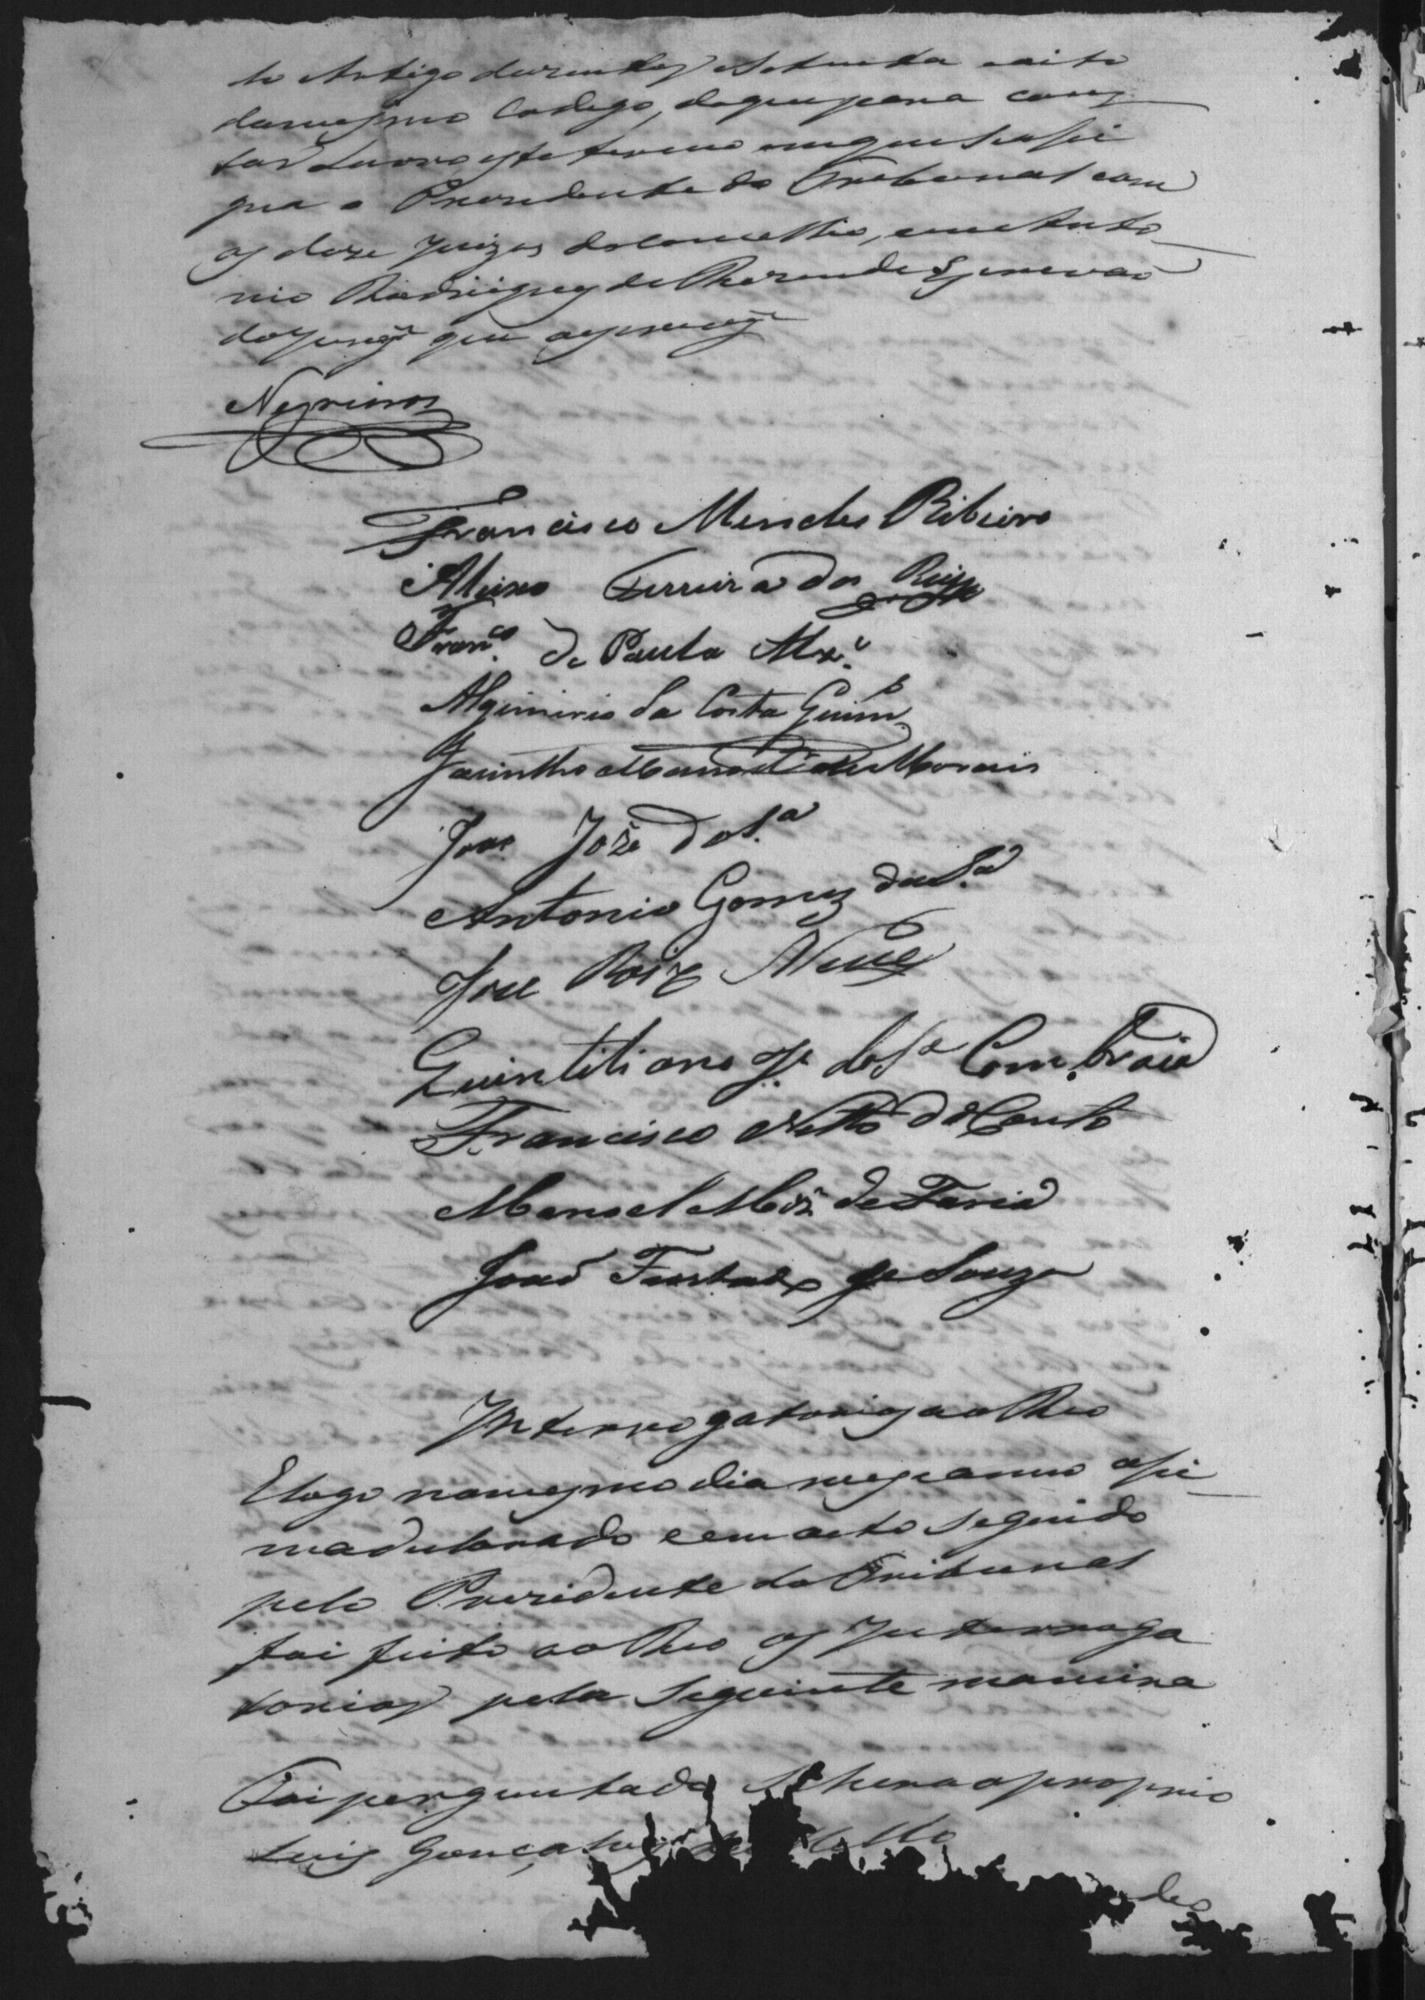 to Artigo duzentos setenta e oito
do mesmo Codigo, do que para cons
tar Lavro este termo em que se assi
gna o Presidente do Tribunal com
os doze Juizes do Concelho, eu Anto
nio Rodrigues de Rezende Escrivaõ
do Jury que escrevy
Negreiros
Francisco Mendes Ribeiro
Aleixo Ferreira dos Reis
Franco. de Paula
Algimirio da Costa Guims
Jacintho Manoel de Morais
João Joze da Sa.
Antonio Gomes da Sa.
Jose Roiz Nunes
Quintiliano Je da Sa Coimbraia
Francisco Netto do Couto
Manoel de Faria
João Je Souza
Interrogatorios ao Reo
E logo no mesmo dia mes e anno assi
ma declarado e em acto seguido
pelo Prezidente do Tribunal
foi feito ao Reo os Interroga
torios pela seguinte maneira
Foi perguntado se hera o proprio
Luis Gonçalves